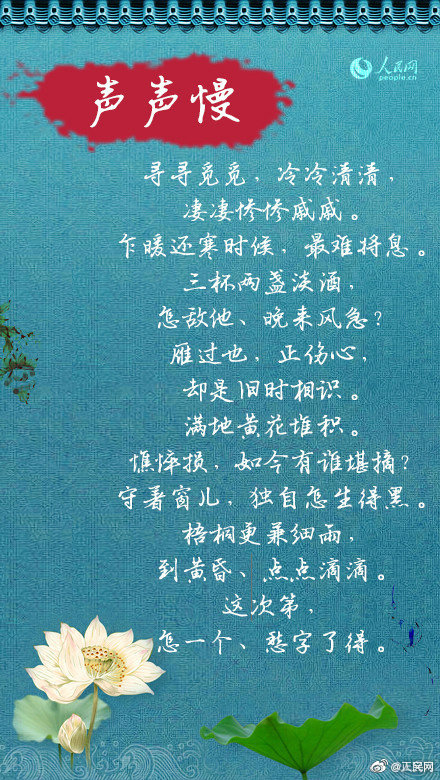 人民网
people.cn
声声慢
寻寻觅觅，冷冷清清，
凄凄惨惨戚戚。
乍暖还寒时候，最难将息。
三杯两盏淡酒，
怎敌他、晚来风急？
雁过也，正伤心，
却是旧时相识。
满地黄花堆积。
憔悴损，如今有谁堪摘？
守著窗儿，独自怎生得黑。
梧桐更兼细雨，
到黄昏、点点滴滴。
这次第，
怎一个、愁字了得。
@正民网